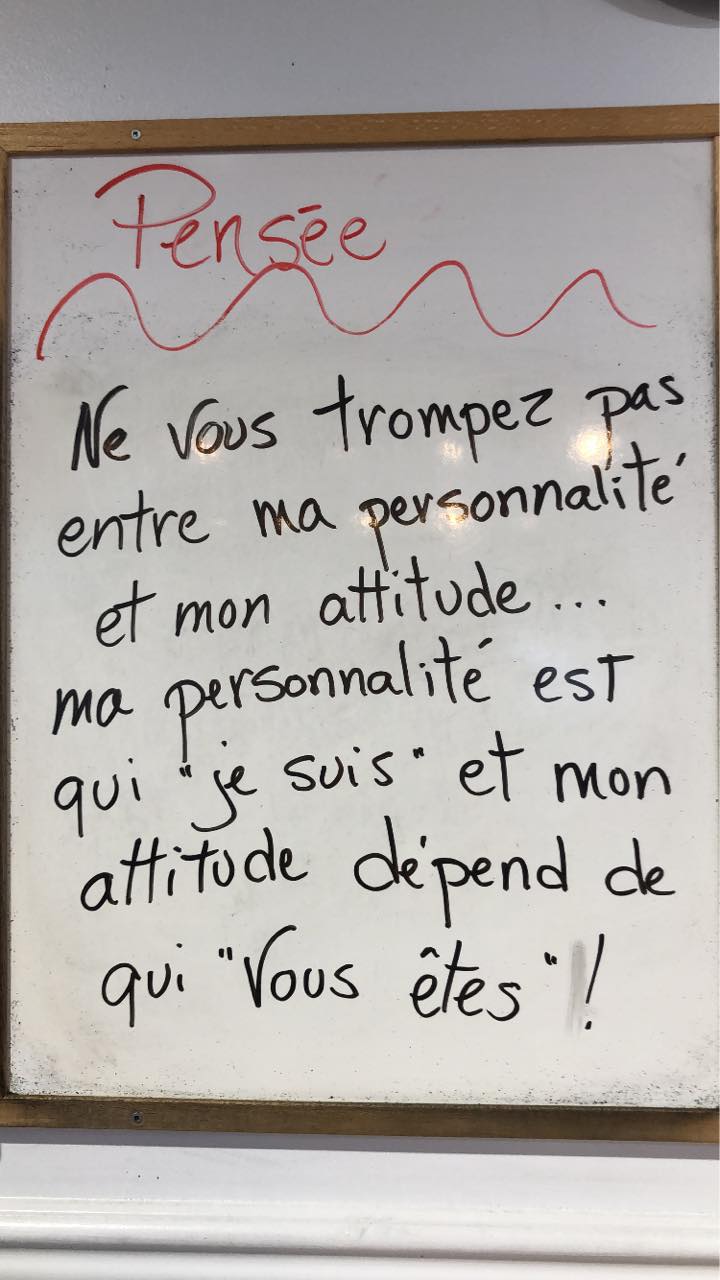 Pensée
Ne vous trompez pas
entre ma personnalité
et mon attitude...
ma personnalité est
qui "je suis" et mon
attitude dépend de
qui "Vous êtes"!